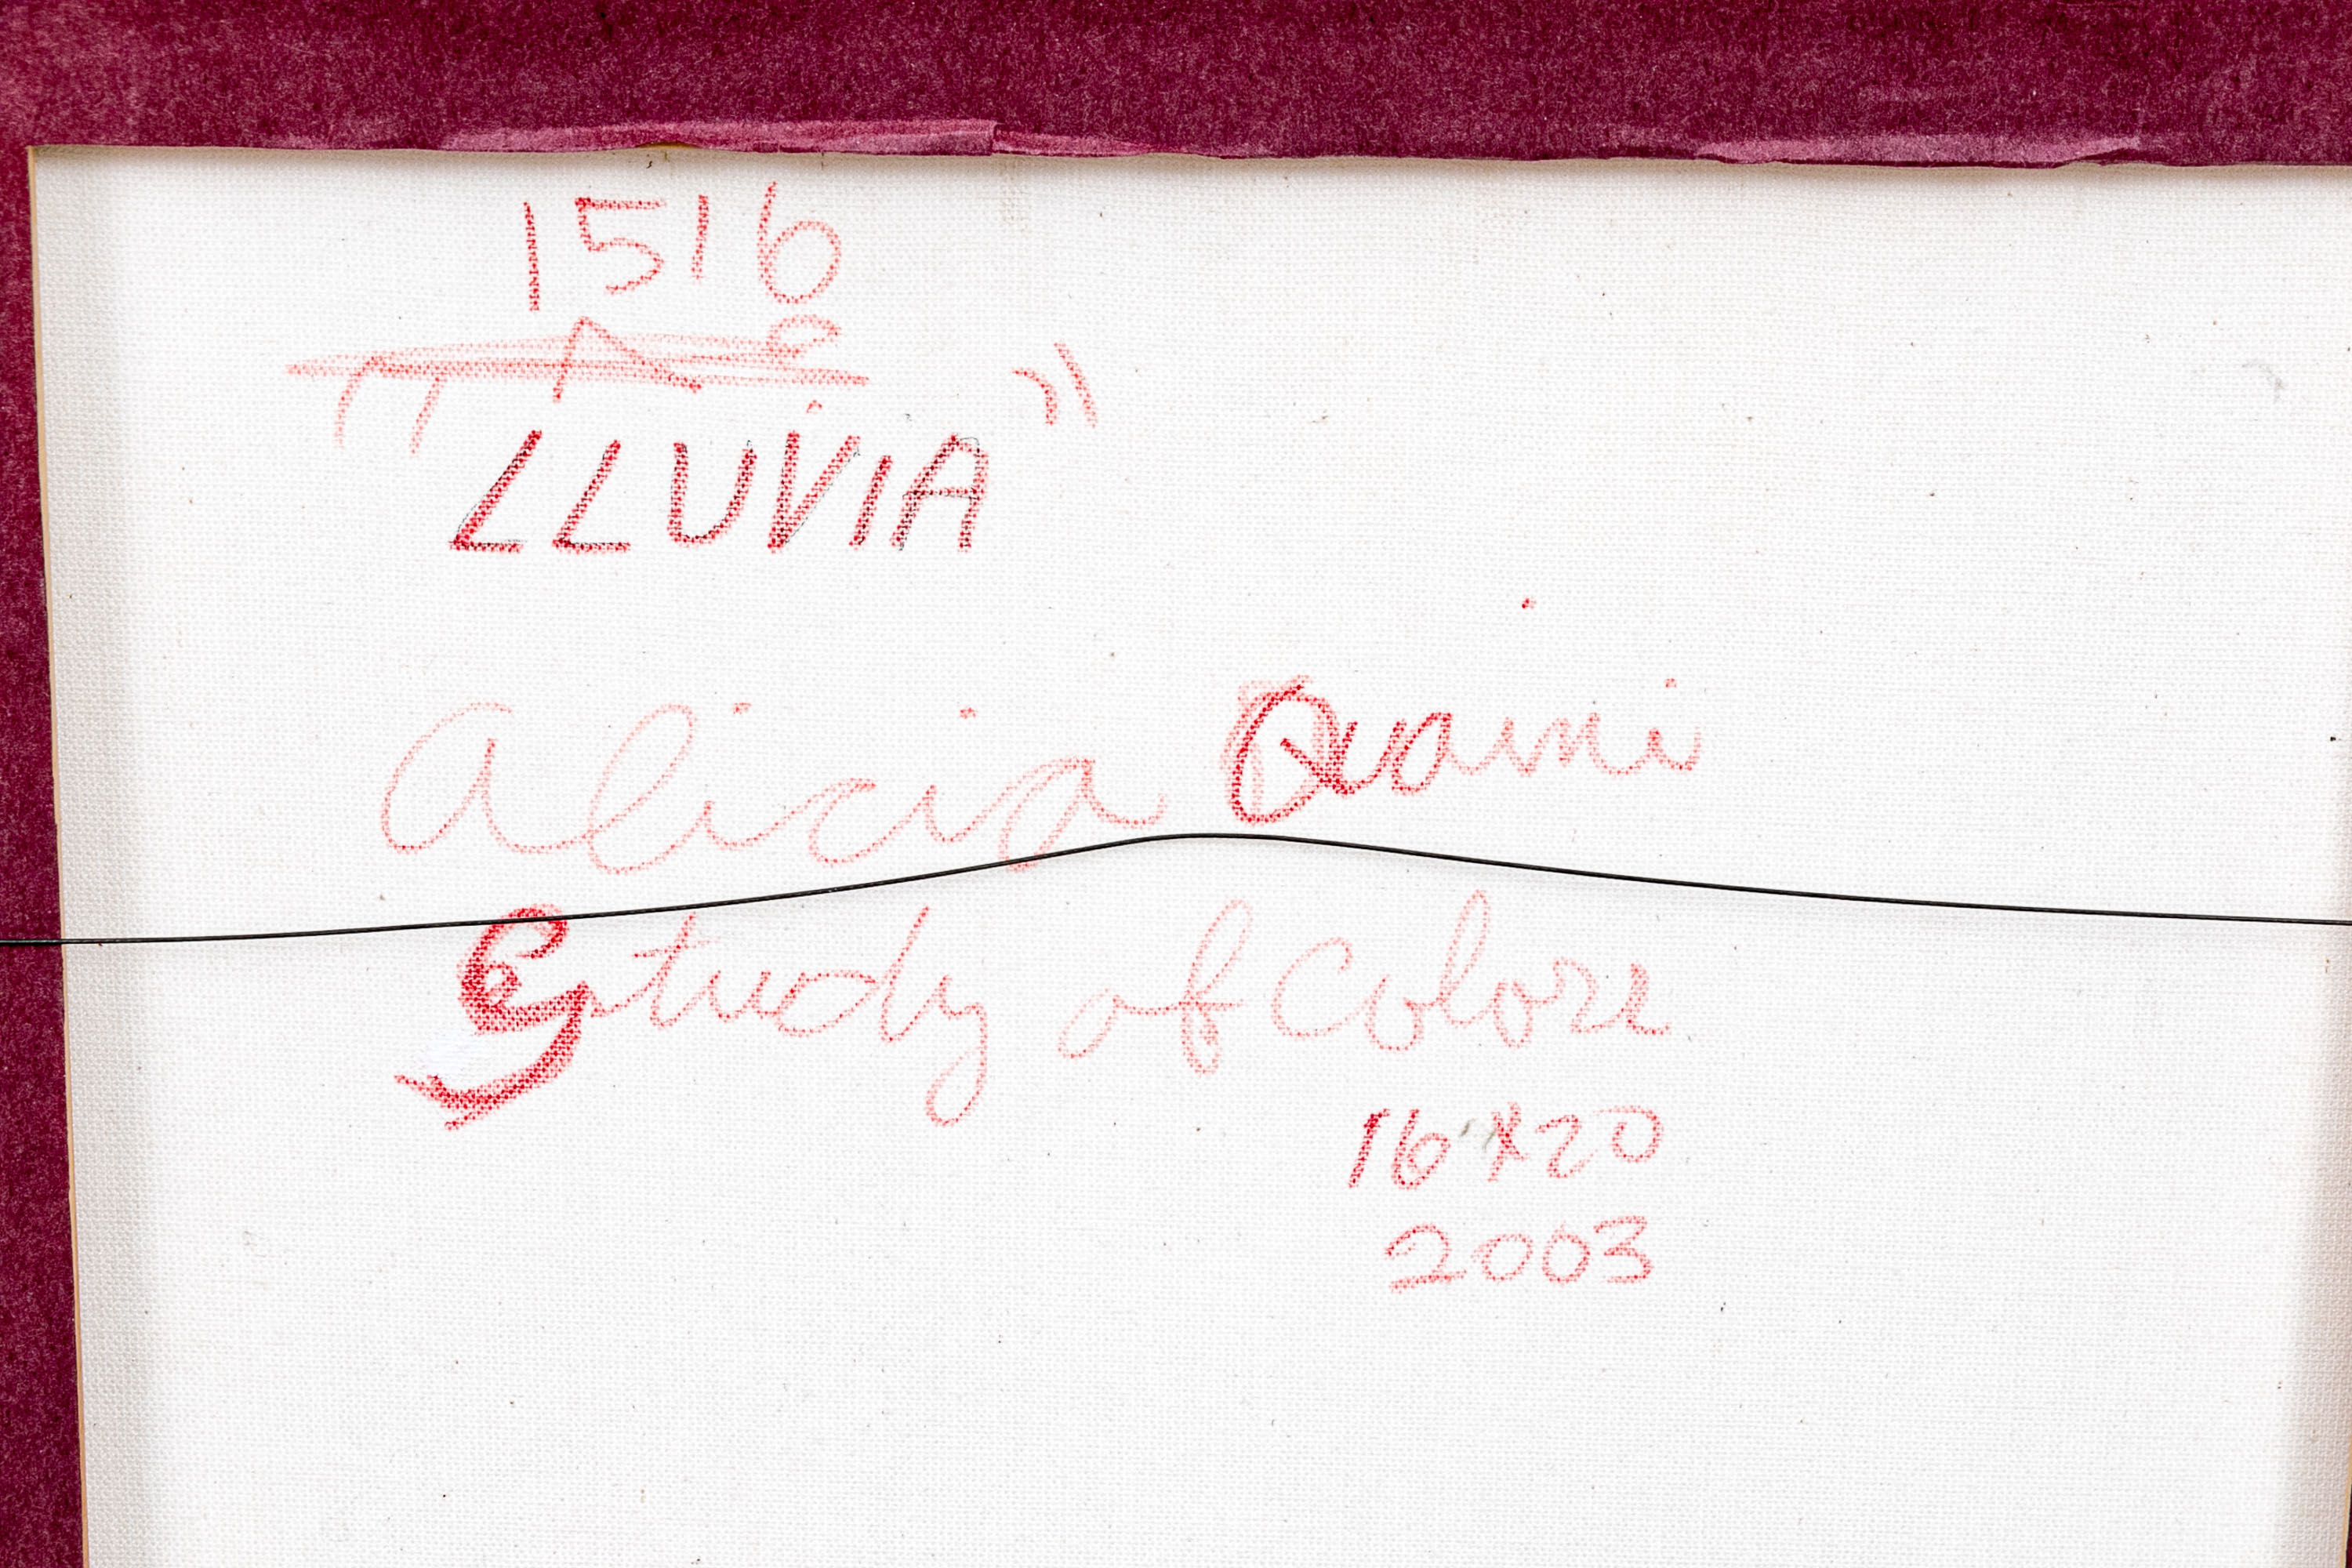 1516
"LLUVIA"
Alicia Quaini
Study of Colore
16 x 20
2003